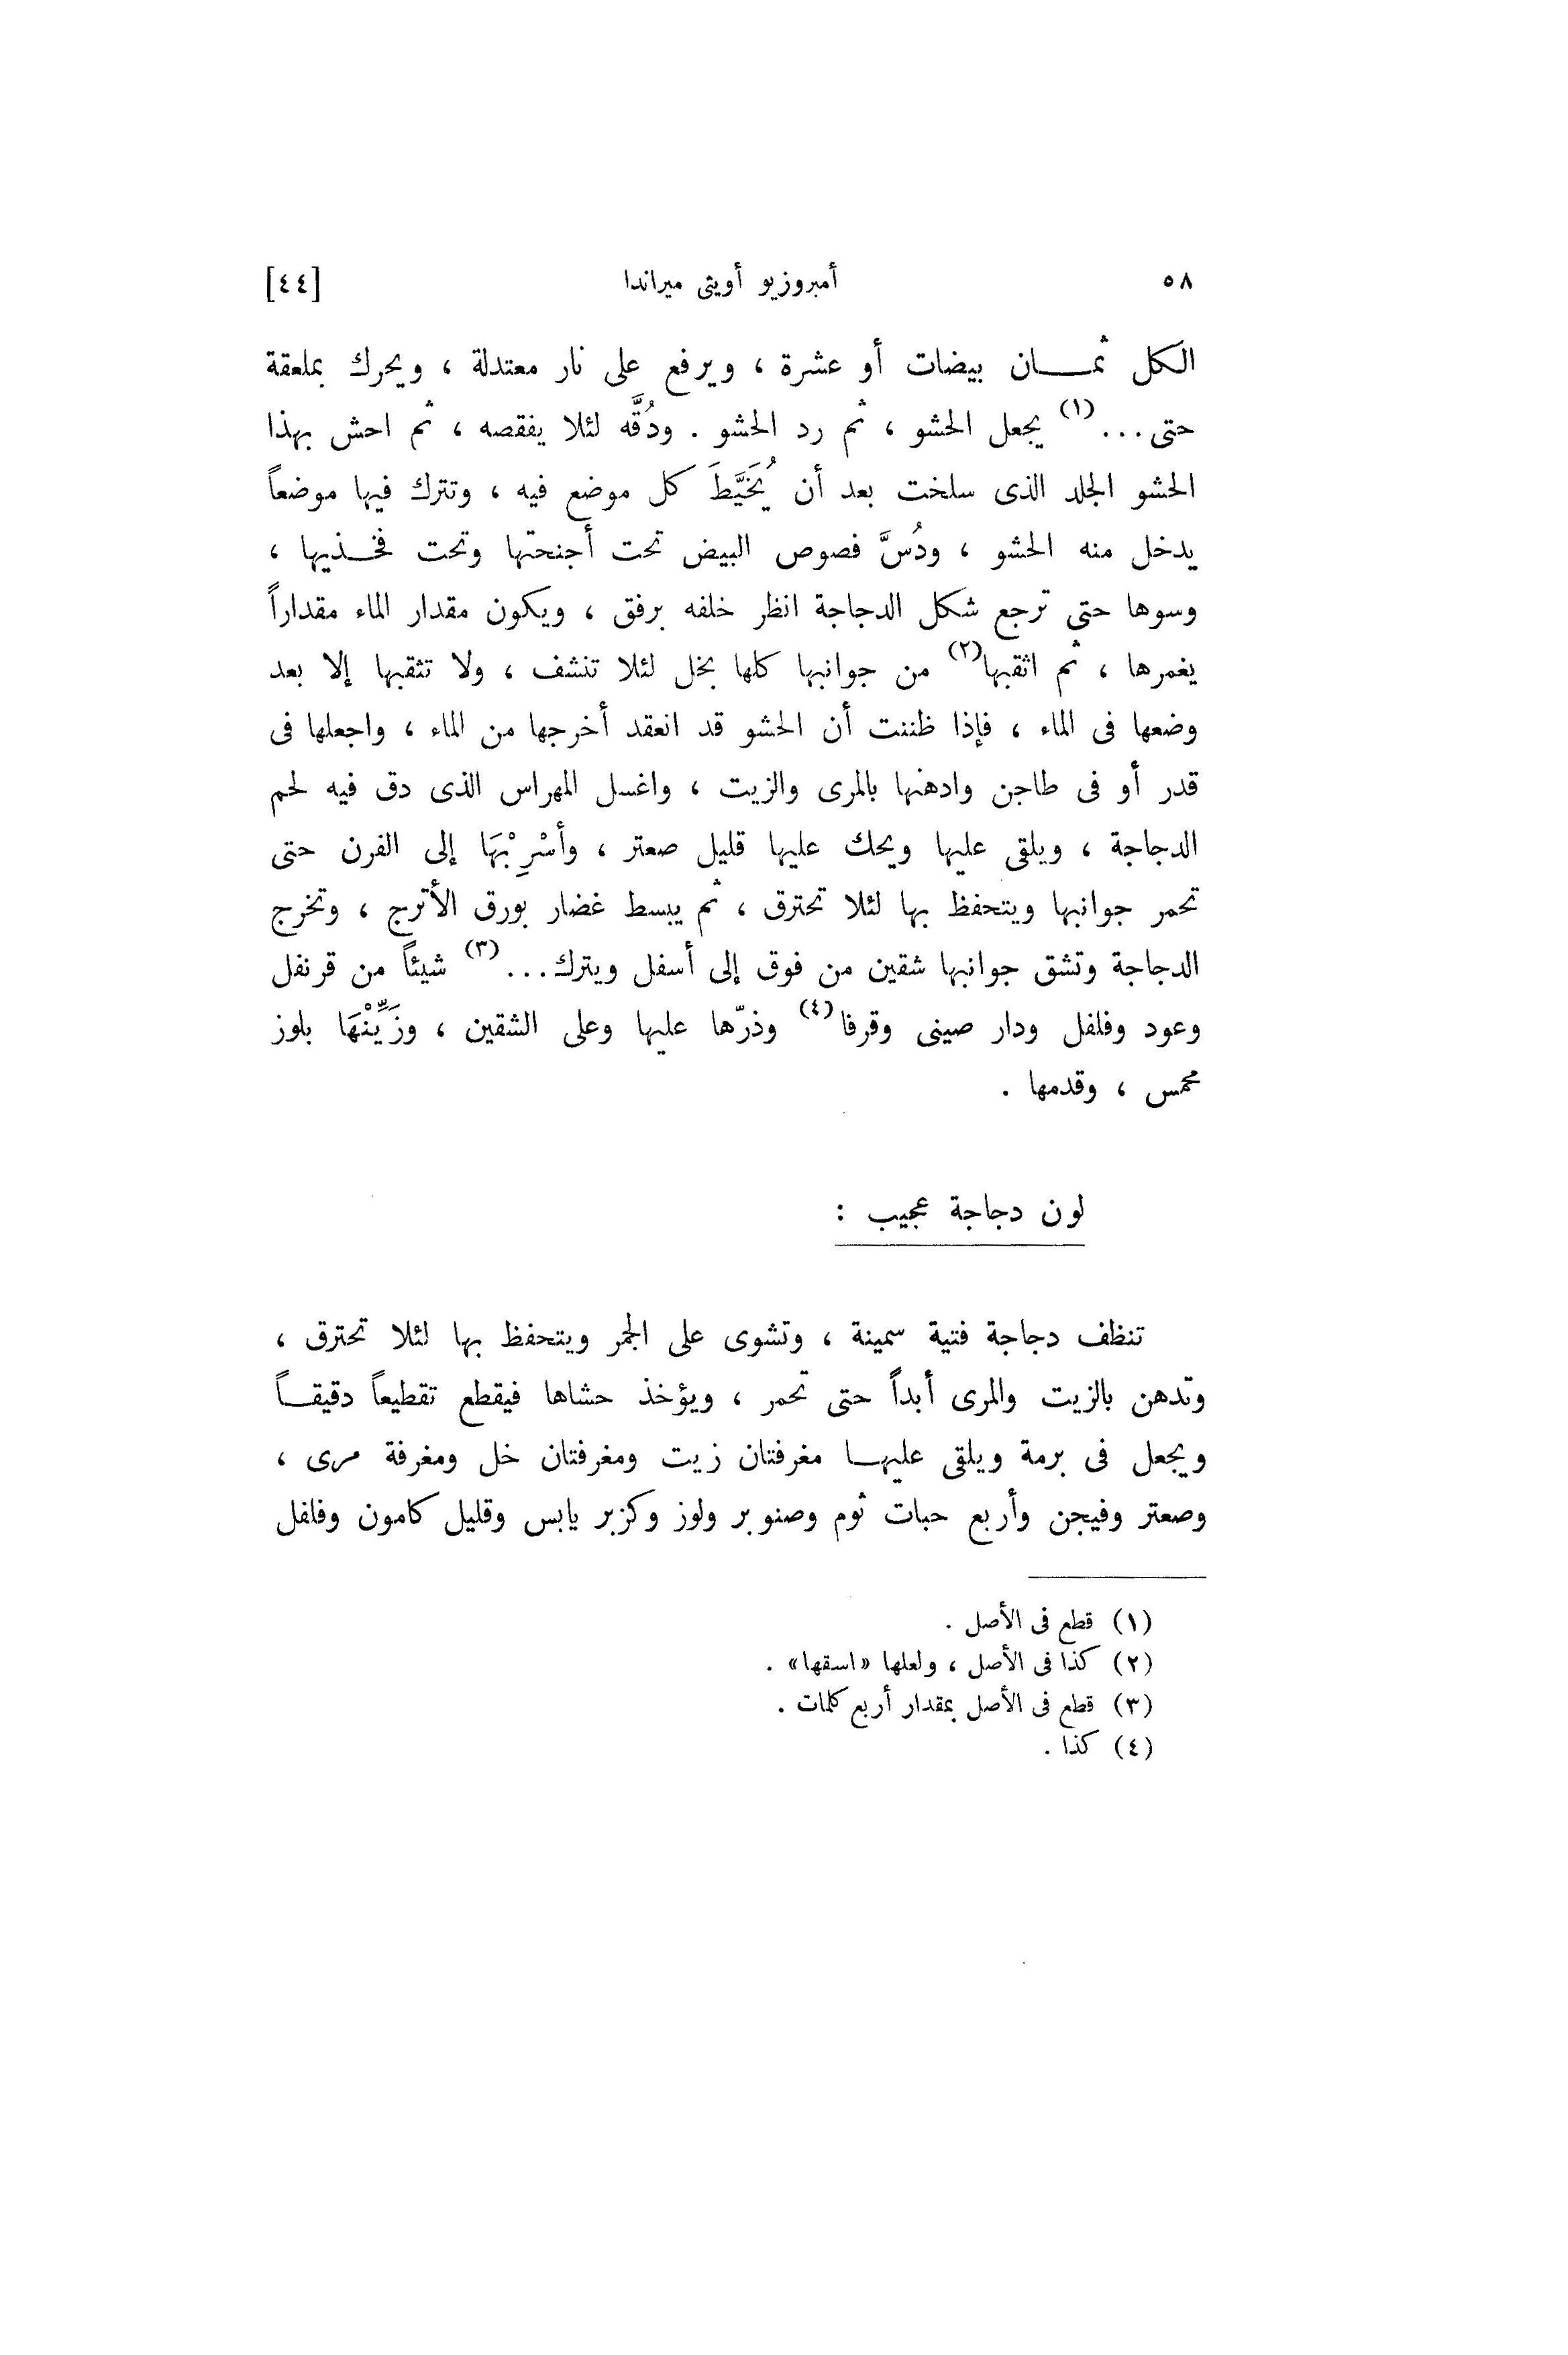 ٥٨ أمبروزيو أويثى ميراندا [٤٤]
الكل ثمـــان بيضات أو عشرة ، ويرفع على نار معتدلة ، ويحرك بملعقة
حتى...(١) يجعل الحشو ، ثم رد الحشو . ودُقَّه لئلا يفقصه ، ثم احش بهذا
الحشو الجلد الذى سلخت بعد أن يُخَيَّطَ كل موضع فيه ، وتترك فيها موضعاً
يدخل منه الحشو ، ودُسَّ فصوص البيض تحت أجنحتها وتحت فخـذيها ،
وسوها حتى ترجع شكل الدجاجة انظر خلفه برفق ، ويكون مقدار الماء مقداراً
يغمرها ، ثم اثقبها(٢) من جوانبها كلها بخل لئلا تنشف ، ولا تثقبها إلا بعد
وضعها فى الماء ، فإذا ظننت أن الحشو قد انعقد أخرجها من الماء ، واجعلها فى
قدر أو فى طاجن وادهنها بالمرى والزيت ، واغسل المهراس الذى دق فيه لحم
الدجاجة ، ويلقى عليها ويحك عليها قليل صعتر ، وأسْرِبْهَا إلى الفرن حتى
تحمر جوانبها ويتحفظ بها لئلا تحترق ، ثم يبسط غضار بورق الأترج ، وتخرج
الدجاجة وتشق جوانبها شقين من فوق إلى أسفل ويترك...(٣) شيئاً من قرنفل
وعود وفلفل ودار صينى وقرفا(٤) وذرّها عليها وعلى الشقين ، وزَيِّنْهَا بلوز
محمس ، وقدمها .
لون دجاجة عجيب :
تنظف دجاجة فتية سمينة ، وتشوى على الجمر ويتحفظ بها لئلا تحترق ،
وتدهن بالزيت والمرى أبداً حتى تحمر ، ويؤخذ حشاها فيقطع تقطيعاً دقيقـاً
ويجعل فى برمة ويلقى عليهـا مغرفتان زيت ومغرفتان خل ومغرفة مرى ،
وصعتر وفيجن وأربع حبات ثوم وصنوبر ولوز وكزبر يابس وقليل كامون وفلفل
(١) قطع فى الأصل .
(٢) كذا فى الأصل ، ولعلها «اسقها» .
(٣) قطع فى الأصل بمقدار أربع كلمات .
(٤) كذا .